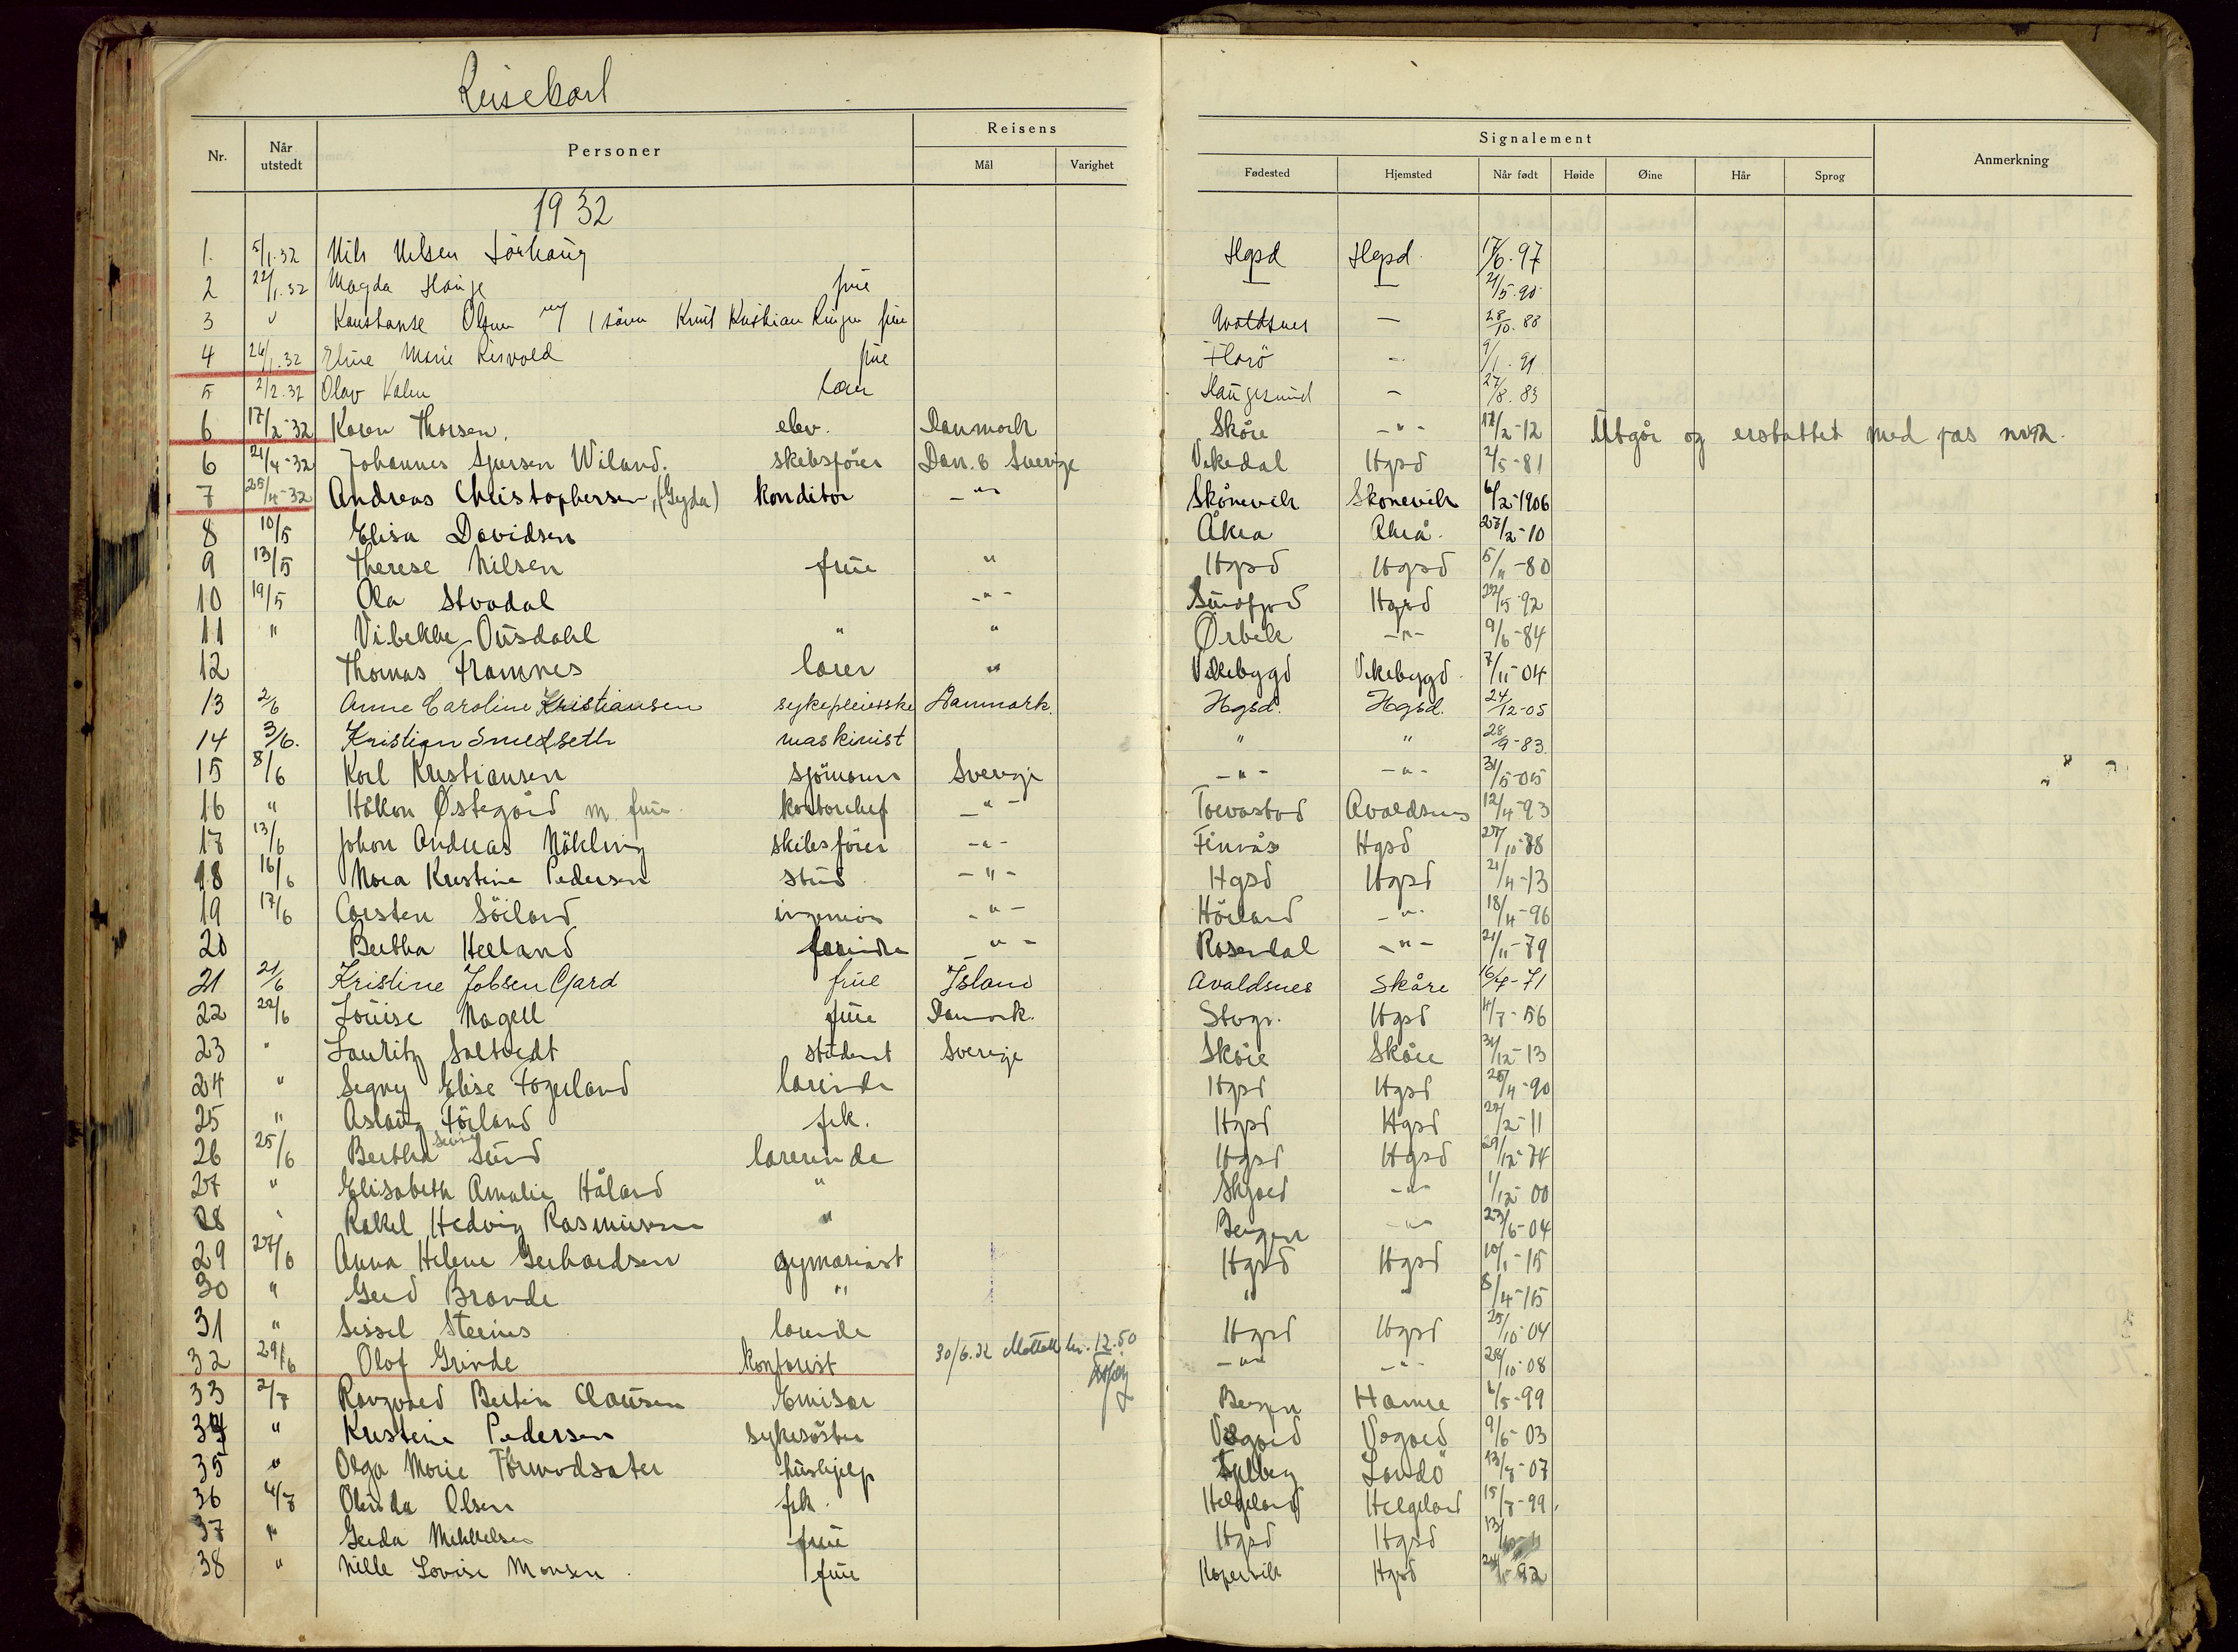 Reisekort
Nr. Når utstedt Personer Reisens Mål Varighet Signalement Fødested Hjemsted Når født Høide Øine Hår Sprog Anmerkning
1932
1. 5/1.32 Nils Nilsen Sörhaug Hgsd Hgsd 17/6.97
2 22/1.32 Magda Hauge frue — — 21/5.90
3 " Konstanse Olsen m/ 1 sönn Knut Kristian frue Avaldsnes — 28/10.88
4 26/1.32 Eline Marie Risvold frue Florö — 9/1.91
5 2/2.32 Olav Haugesund — 27/8.83
6 17/2-32 Karen Thorsen. elev. Danmark Skåre -"- 12/2-12 Utgår og erstattet med pas nr 92.
6 21/4-32 Johannes Sjursen Wiland. skibsförer Dan. & Sverige Vikedal Hgsd 2/5-81
7 25/4-32 Andreas Christophersen, (Gyda) konditor -"- Skånevik Skonevik 6/2-1906
8 10/5 Elisa Davidsen Åkra Akrå. 27/2-10
9 13/5 Therese Nilsen frue " Hgsd Hgsd 5/11-80
10 19/5 Ola Stvadal -"- Sundfjord Hgsd 22/5-92
11 " Vibekke Ousdahl " " Ørbek -"- 9/6-84
12 Thomas Framnes lærer " Vikebygd Vikebygd 7/11-04
13 2/6 Anne Caroline Kristiansen sykepleierske Danmark. Hgsd. Hgsd. 24/12-05
14 3/6. Kristian Smedseth maskinist " " 28/9-83
15 8/6 Karl Kristiansen sjömann Sverige -"- -"- 31/5-05
16 " Håkon Østegård m. frue. kontorchef -"- Torvastad Avaldsnes 12/4-93
17 13/6 Johan Andreas Nökling skibsförer -"- Finnås Hgsd 27/10-88
18 16/6 Nora Kristine Pedersen stud -"- Hgsd Hgsd 21/4-13
19 17/6 Carsten Söiland ingeniör -"- Höiland -"- 18/4-96
20 Bertha Helland -"- Rosendal -"- 21/11-79
21 21/6 Kristine Jobsen Gjard frue Island Avaldsnes Skåre 16/4-71
22 22/6 Louise Nagell frue Danmark. Stvgr. Hgsd 4/7-56
23 " Lauritz Saltvedt student Sverige Skåre Skåre 31/12-13
24 " Signy Elise Fogerland lærerinde Hgsd Hgsd 20/4-90
25 " Aslaug Föiland frk. Hgsd Hgsd 22/2-11
26 25/6 Bertha Sund lærerinde Hgsd Hgsd 29/12-74
27 " Elisabeth Amalie Håland " Skjold -"- 1/12-00
28 " Rakel Hedvig Rasmussen " Bergen -"- 23/6-04
29 27/6 Anna Helene Gerhardsen gymnasiast Hgsd Hgsd 10/1-15
30 " Gerd Brande " " " 8/4-15
31 " Sissel Steenes lærerinde Hgsd Hgsd 25/10-04
32 29/6 Olof Grinde kontorist 30/6.32 Mottatt kr. 12.50 -"- -"- 28/10-08
33 2/7 Rangvald Bertin Clausen Emisær Bergen Hamre 6/5-99
34 " Kristine Pedersen sykesöster Vågård Vågård 9/6-03
35 " Olga Marie Tormodsæter hushjelp Landö 13/7-07
36 4/7 Olinda Olsen frk. Helgeland Helgeland 15/7-99.
37 " Gerda Mikkelsen frue Hgsd Hgsd
38 " Nille Lovise Monsen frue Kopervik Hgsd